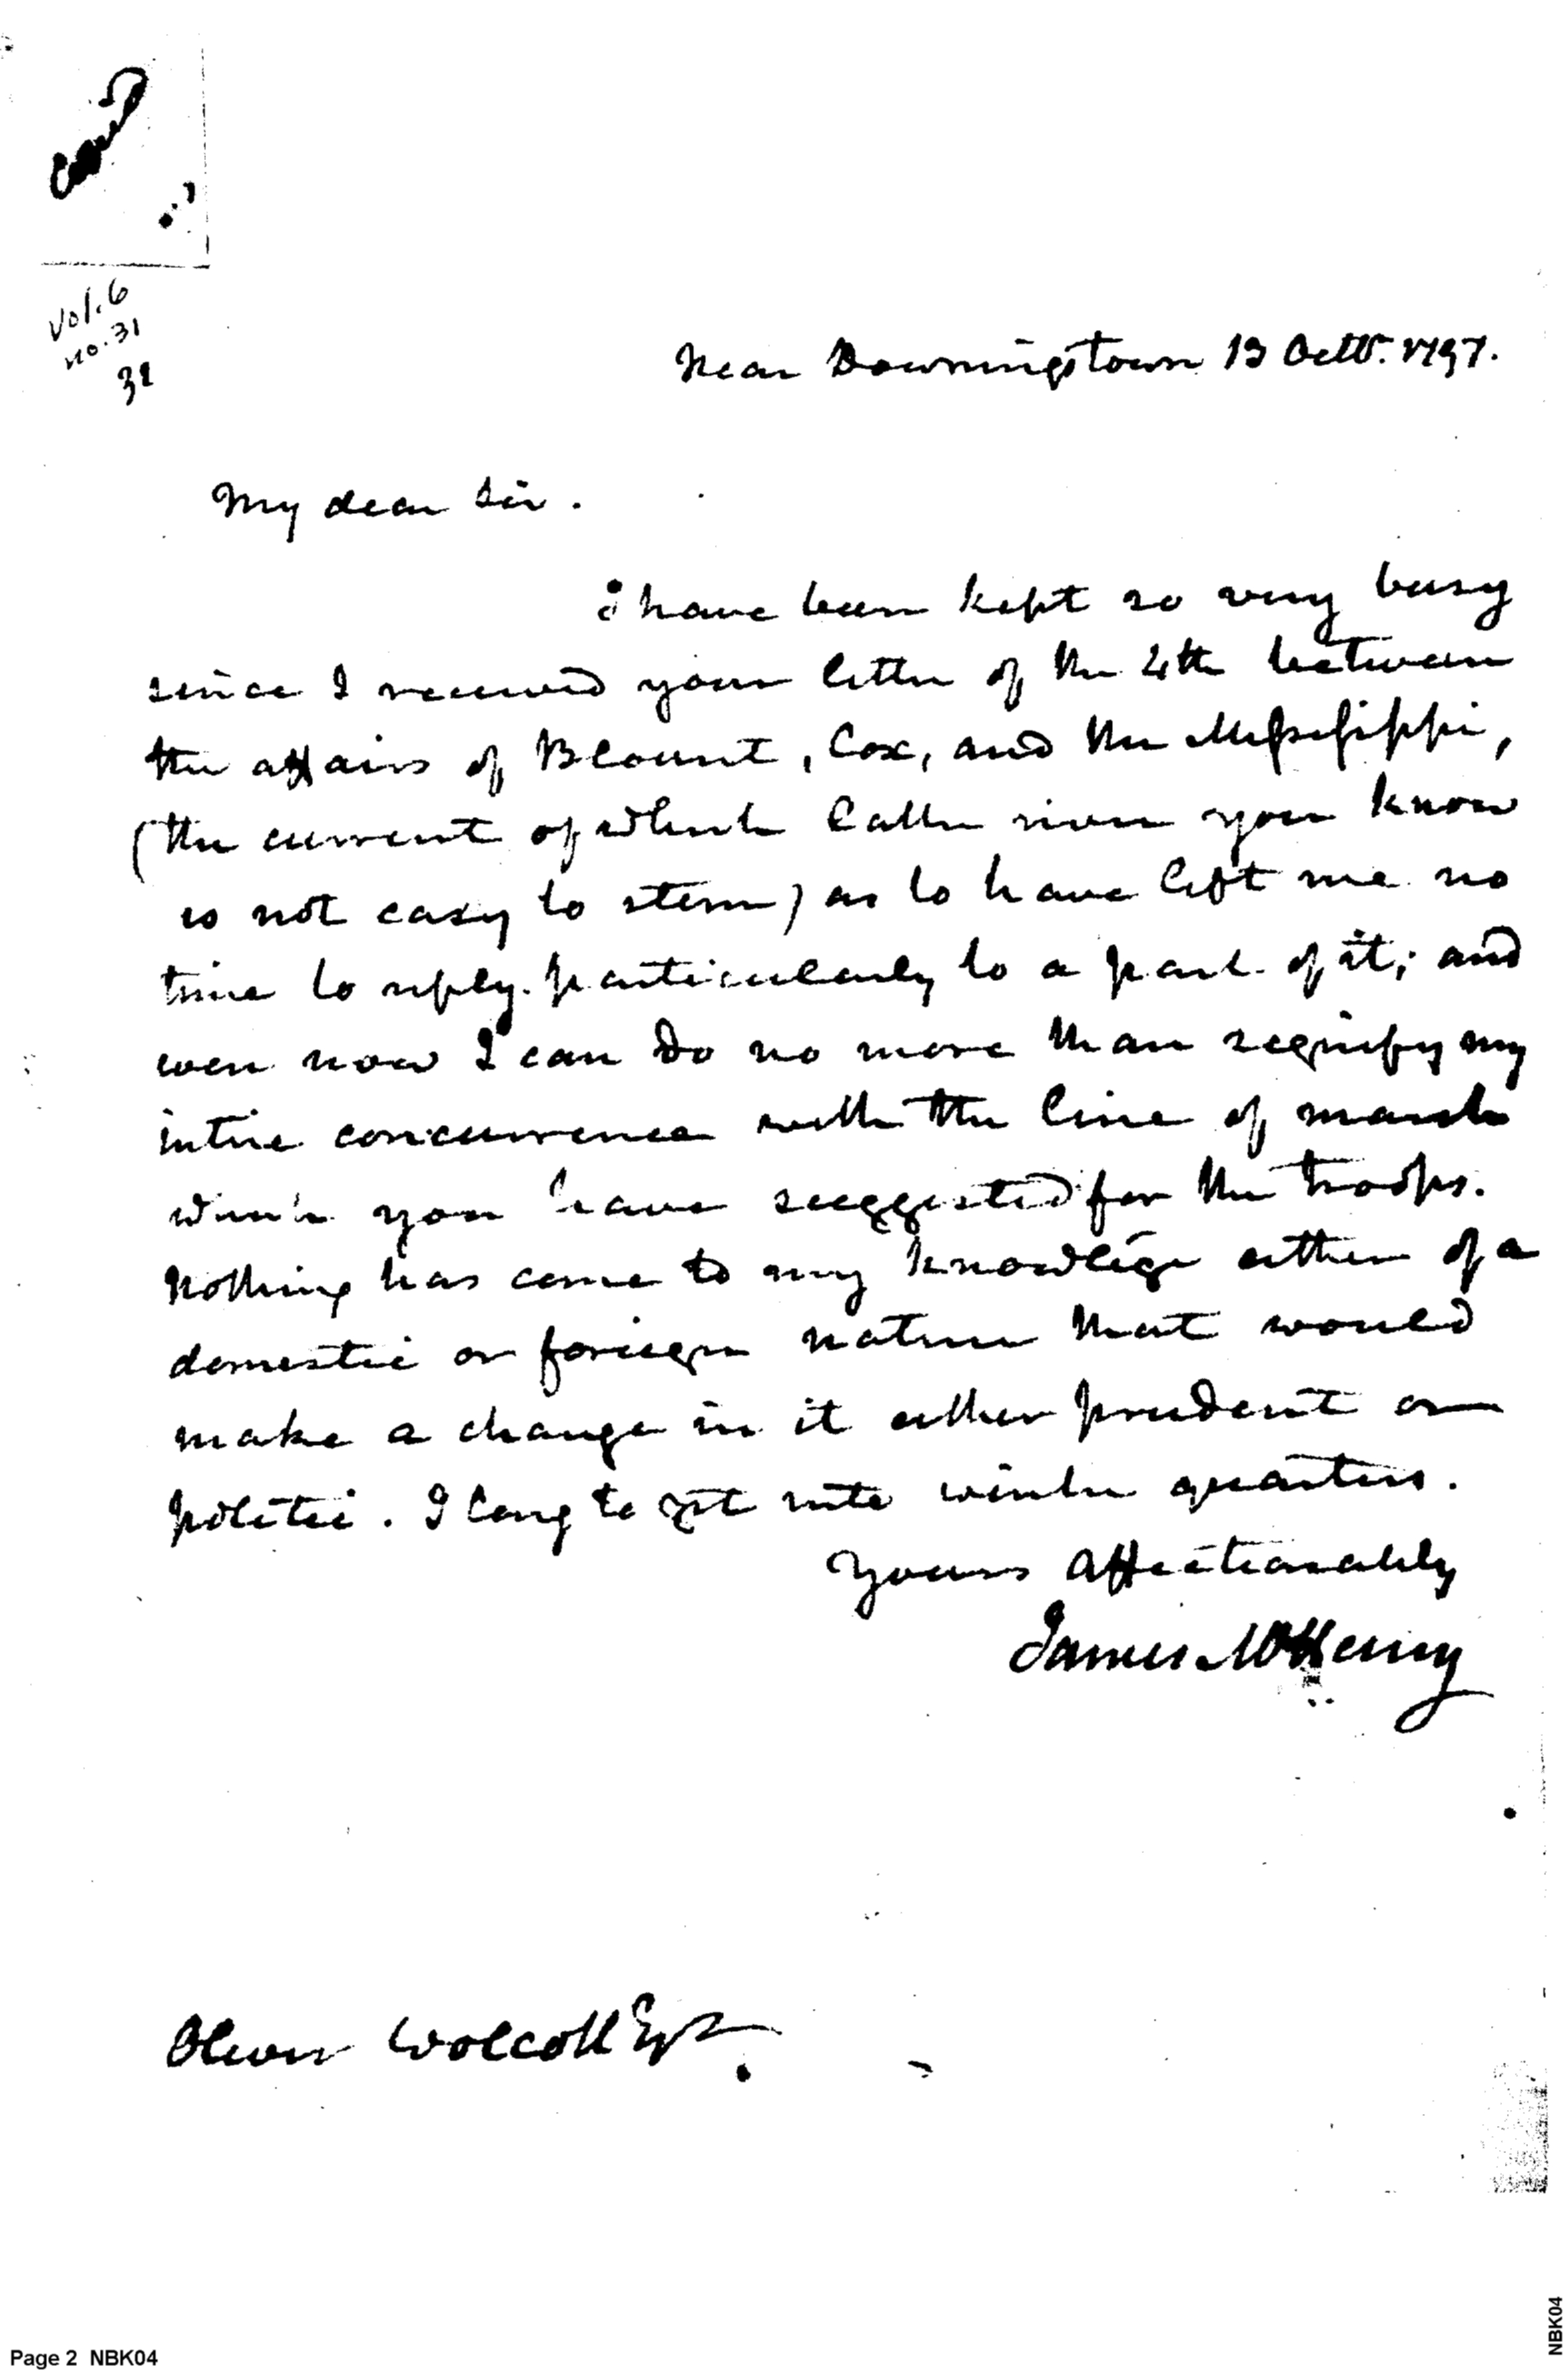 Vol. 6
no. 31
32
Near Downingstown 13 Octbr. 1797.
My dear Sir.
I have been kept so very busy
since I received your letter of the 4th between
the affairs of Blount, Cox, and the Mississippi,
(the current of which latter river you know
is not easy to stem) as to have left me no
time to reply particularly to a part of it; and
even now I can do no more than signify my
intire concurrence with the line of march
which you have suggested for the troops.
Nothing has come to my knowlege either of a
domestic or foreign nature that would
make a change in it either prudent or
politic. I long to get into winter quarters.
Yours affectionately
James McHenry
Oliver Wolcott Esqr.
Page 2 NBK04
NBK04